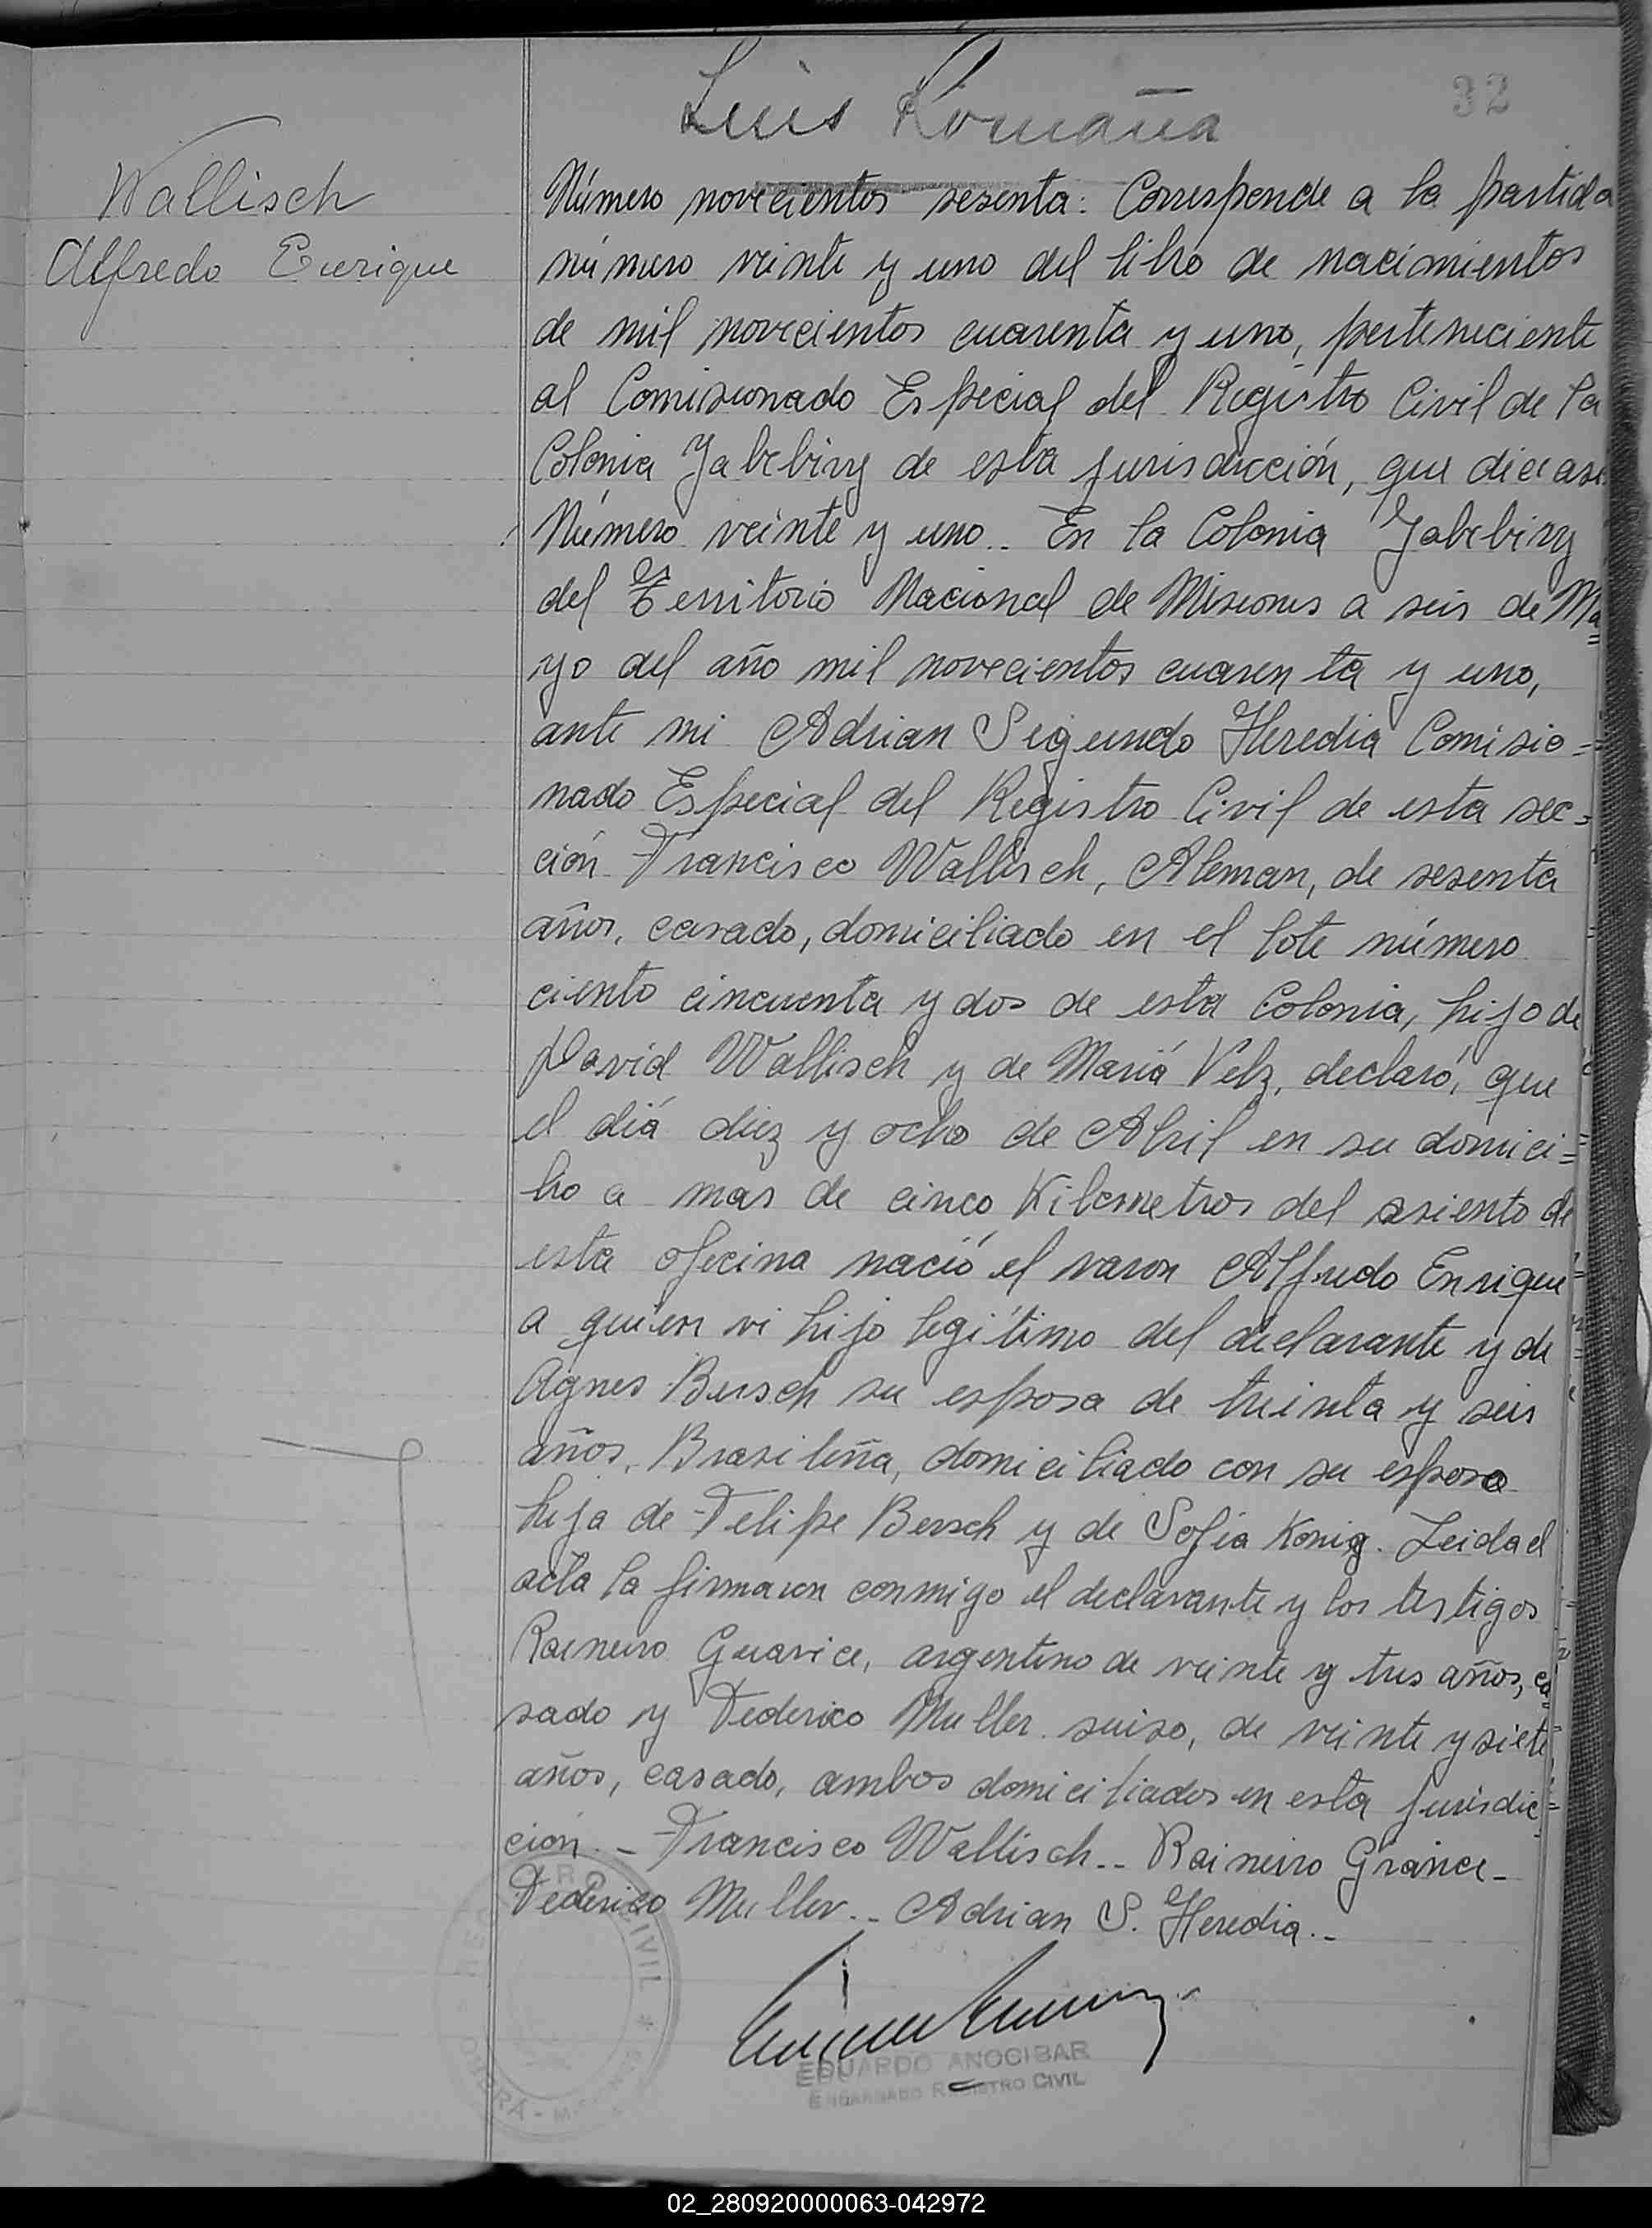 Luis Romaña
32
Wallisch
Alfredo Enrique
Número novecientos sesenta: Corresponde a la partida
número veinte y uno del libro de nacimientos
de mil novecientos cuarenta y uno, perteneciente
al Comisionado Especial del Registro Civil de la
Colonia Yabebiry de esta jurisdicción, que dice asi
Número veinte y uno.. En la Colonia Yabebiry
del Territorio Nacional de Misiones a seis de Ma=
yo del año mil novecientos cuarenta y uno,
ante mi Adrian Segundo Heredia Comisio=
nado Especial del Registro Civil de esta sec=
ción Francisco Wallisch, Aleman, de sesenta
años, casado, domiciliado en el lote número
ciento cincuenta y dos de esta Colonia, hijo de
David Wallisch y de María Velz, declaró, que
el día diez y ocho de Abril en su domici=
lio a mas de cinco Kilometros del asiento de
esta oficina nació el varon Alfredo Enrique
a quien vi hijo legítimo del declarante y de
Agnes Bersch su esposa de treinta y seis
años, Brasileña, domiciliado con su esposo
hija de Felipe Bersch y de Sofía Konig. Leida el
acta la firmaron conmigo el declarante y los testigos
Raineiro argentino de veinte y tres años, ca=
sado y Federico Muller suizo, de veinte y siete
años, casado, ambos domiciliados en esta jurisdic=
ción.- Francisco Wallisch.- Raineiro Grance-
Federico Muller.- Adrian S. Heredia..
EDUARDO ANOCIBAR
ENCARGADO REGISTRO CIVIL
REGISTRO CIVIL *
02_280920000063-042972